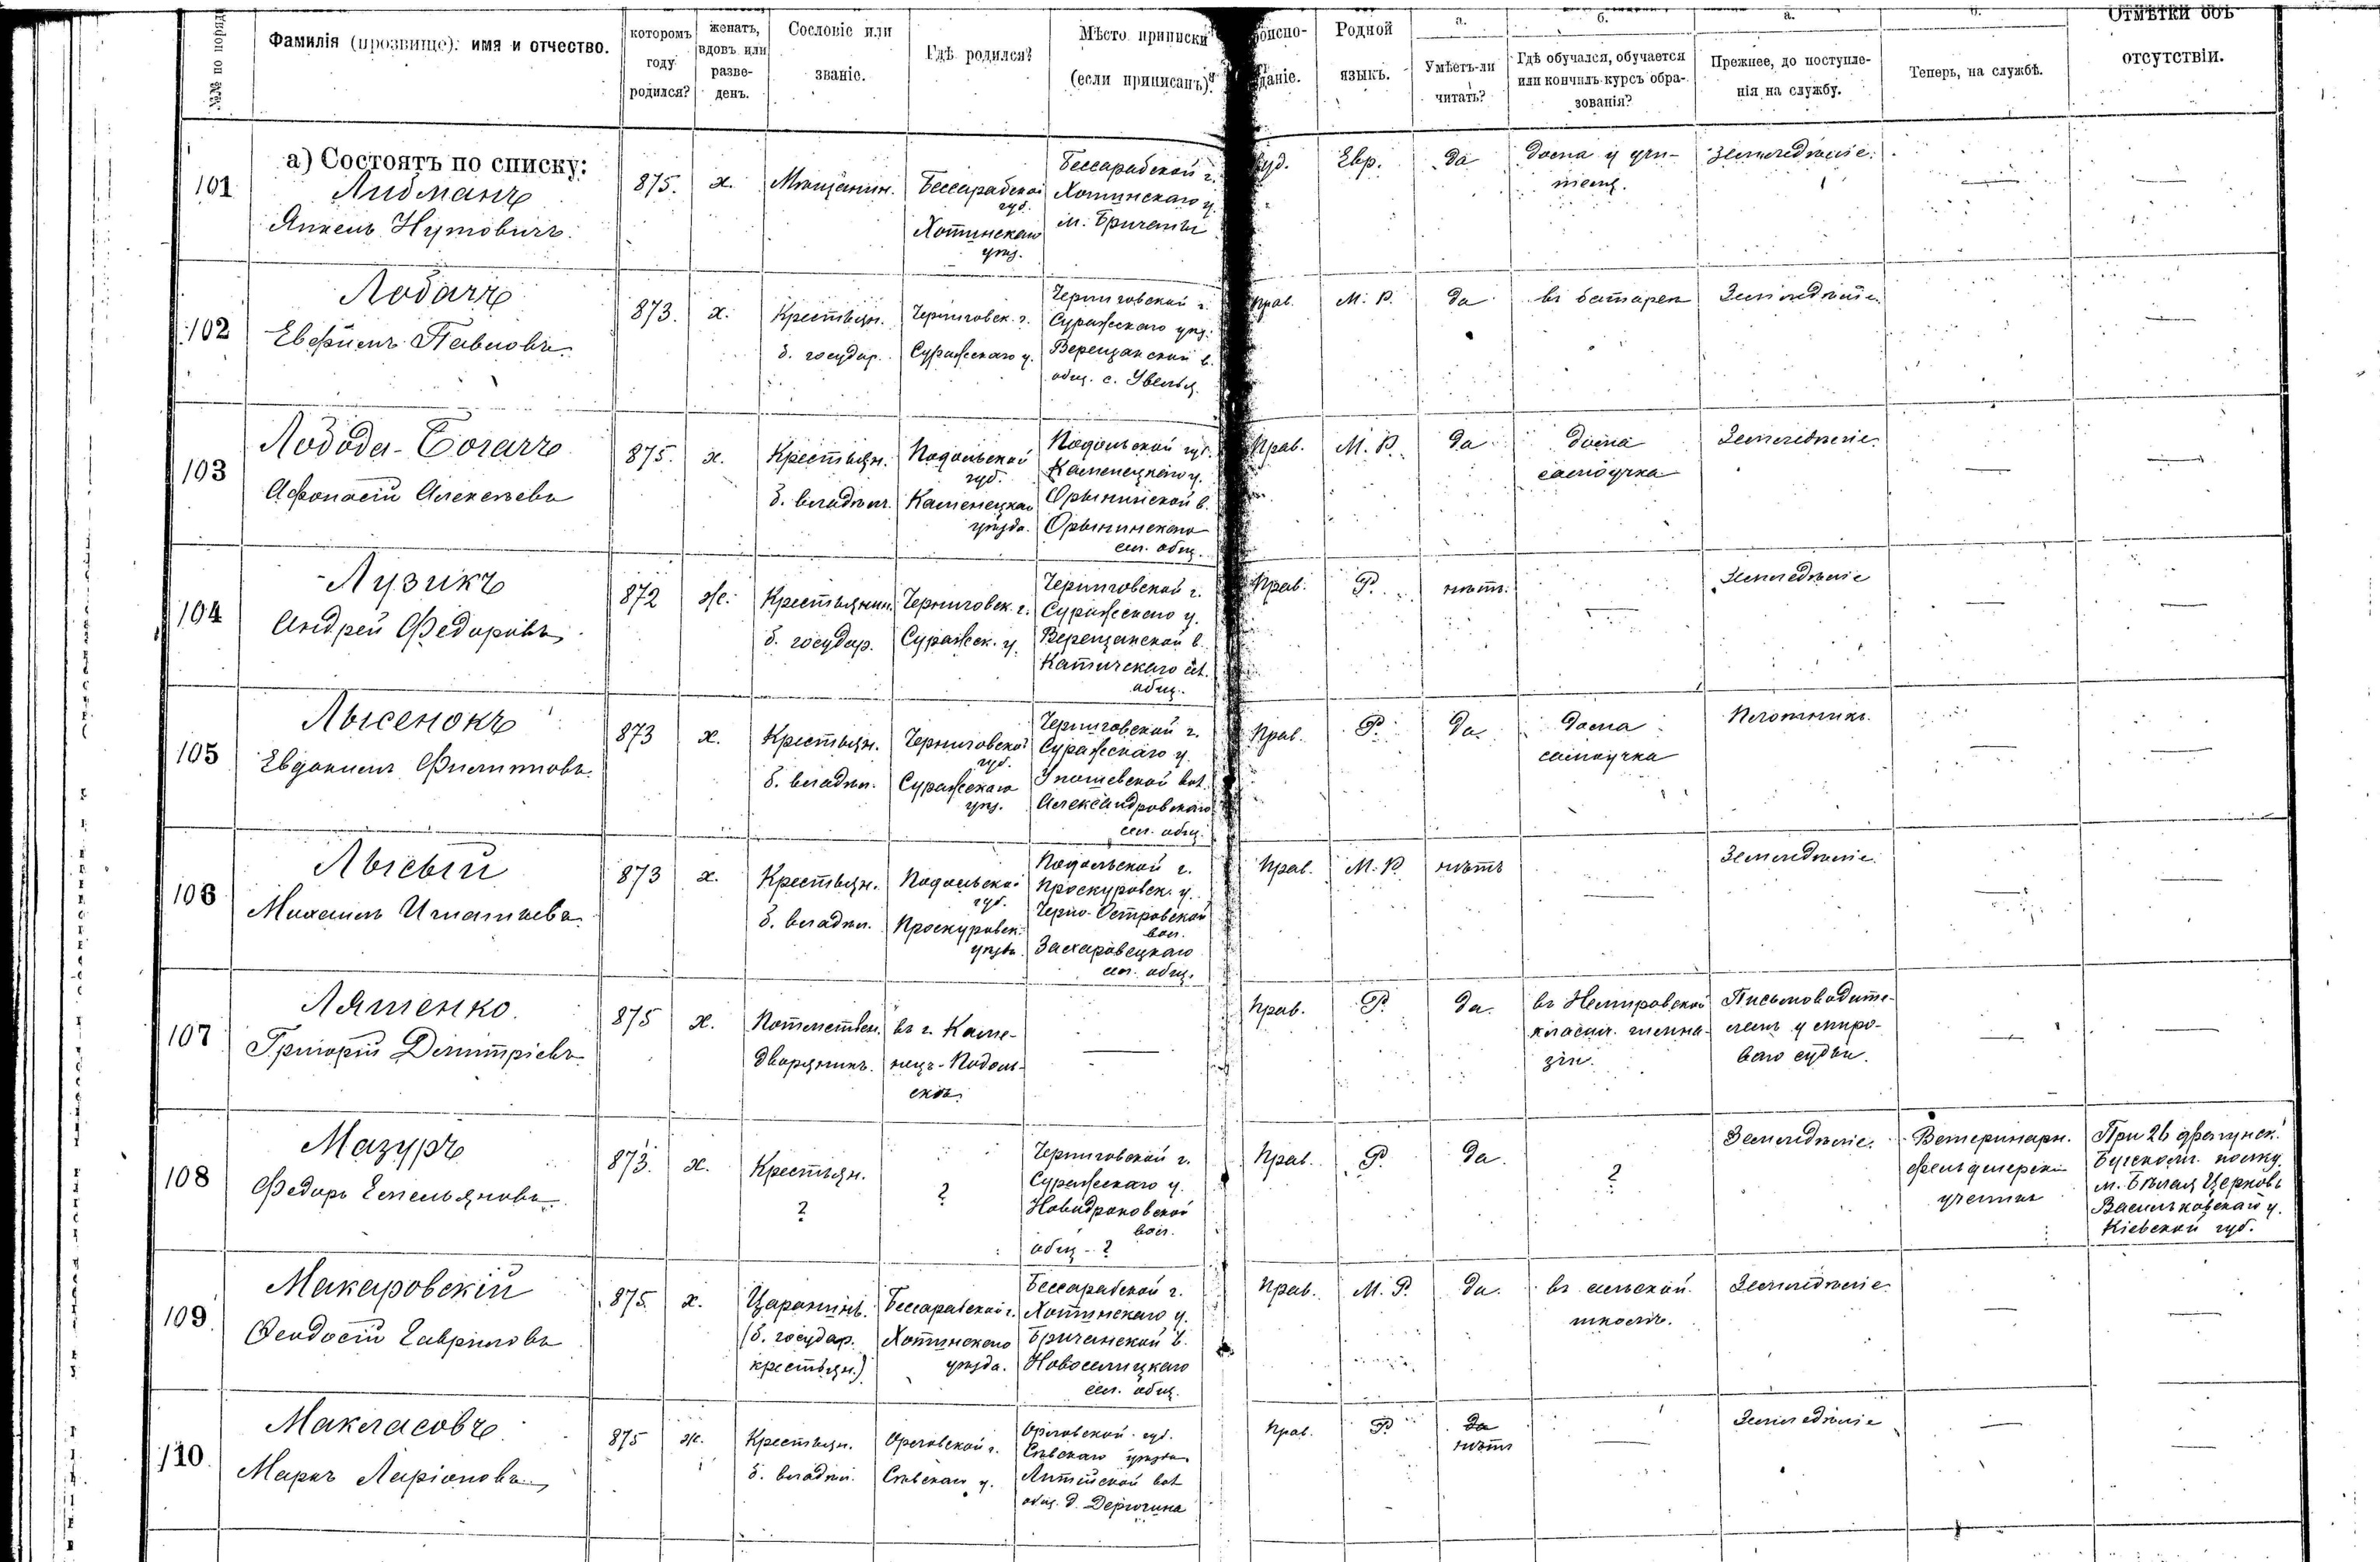 №№ по порядку
Фамилія (прозвище): имя и отчество.
которомъ году родился?
женатъ, вдовъ или разведенъ.
Сословіе или званіе.
Гдѣ родился?
Мѣсто приписки (если приписанъ)?
Родной языкъ.
а.
Умѣетъ-ли читать?
б.
Гдѣ обучался, обучается или кончилъ курсъ образованія?
а.
Прежнее, до поступленія на службу.
Теперь, на службѣ.
Отмѣтки объ отсутствіи.
а) Состоятъ по списку:
101
Либманъ
Янкель Нутовичъ.
875.
х.
Мѣщанин.
Бессарабской
губ.
Хотинскаго
уѣз.
Бессарабской г.
Хотинскаго у.
м. Бричаны
Іуд.
Евр.
да
дома у учи-
тел.
Земледѣліе.
—
—
102
Лобачъ
Евфимъ Павловъ.
873.
х.
Крестьян.
б. государ.
Черниговск. г.
Суражскаго у.
Черниговской г.
Суражскаго уѣз.
Верещакской в.
общ. с. Увелья
Прав.
М. Р.
да
въ батареи
Земледѣліе
—
103
Лобода-Богачъ
Афонасій Алексѣевъ
875.
х.
Крестьян.
б. владѣл.
Подольской
губ.
Каменецкаго
уѣзда.
Подольской губ.
Каменецкаго у.
Орынинской в.
Орынинскаго
сел. общ.
Прав.
М. Р.
да
дома
самоучка
Земледѣліе.
—
—
104
Лузикъ
Андрей Федоровъ
872
ж.
Крестьянин.
б. государ.
Черниговск. г.
Суражск. у.
Черниговской г.
Суражскаго у.
Верещакской в.
Катичскаго сел.
общ.
Прав.
Р.
нѣтъ.
—
Земледѣліе
—
—
105
Лысенокъ
Евдокимъ Филипповъ.
873
х.
Крестьян.
б. владѣл.
Черниговской
губ.
Суражскаго
уѣз.
Черниговской г.
Суражскаго у.
вол.
Александровскаго
сел. общ.
Прав.
Р.
да
дома
самоучка
Плотникъ.
—
—
106
Лысый
Михаилъ Игнатьевъ
873
х.
Крестьян.
б. владѣл.
Подольской
губ.
Проскуровск.
уѣзда.
Подольской г.
Проскуровск. у.
Черно-Островской
вол.
Захаровецкаго
сел. общ.
Прав.
М. Р.
нѣтъ
—
Земледѣліе.
—
—
107
Ляшенко.
Григорій Димитріевъ
875
х.
Потомствен.
дворянинъ.
въ г. Каме-
нецъ-Подоль-
скѣ.
—
Прав.
Р.
да.
въ Немировской
классич. гимна-
зіи.
Письмоводите-
лемъ у миро-
ваго судьи.
—
—
108
Мазуръ
Федоръ Емельяновъ
873.
х.
Крестьян.
?
?
Черниговской г.
Суражскаго у.
Новодроковской
вол.
общ - ?
Прав.
Р.
да.
?
Земледѣліе.
Ветеринарн.
фельдшерскій
ученикъ
При 26 драгунск.
Бугскомъ полку
м. Бѣлая Церковь
Васильковскаго у.
Кіевской губ.
109
Макаровскій
Феодосій Гавриловъ
875.
х.
Царанинъ.
(б. государ.
крестьян.)
Бессарабской г.
Хотинскаго
уѣзда.
Бессарабской г.
Хотинскаго у.
Бричанской в.
Новоселицкаго
сел. общ.
Прав.
М. Р.
да.
въ сельской
школѣ.
Земледѣліе.
—
—
110
Макласовъ
Маркъ Ларіоновъ
875
ж.
Крестьян.
б. владѣл.
Орловской г.
Сѣвскаго у.
Орловской губ.
Сѣвскаго уѣзда
вол
общ. д. Дерюгина
Прав.
Р
да
нѣтъ
—
Земледѣліе
—
—